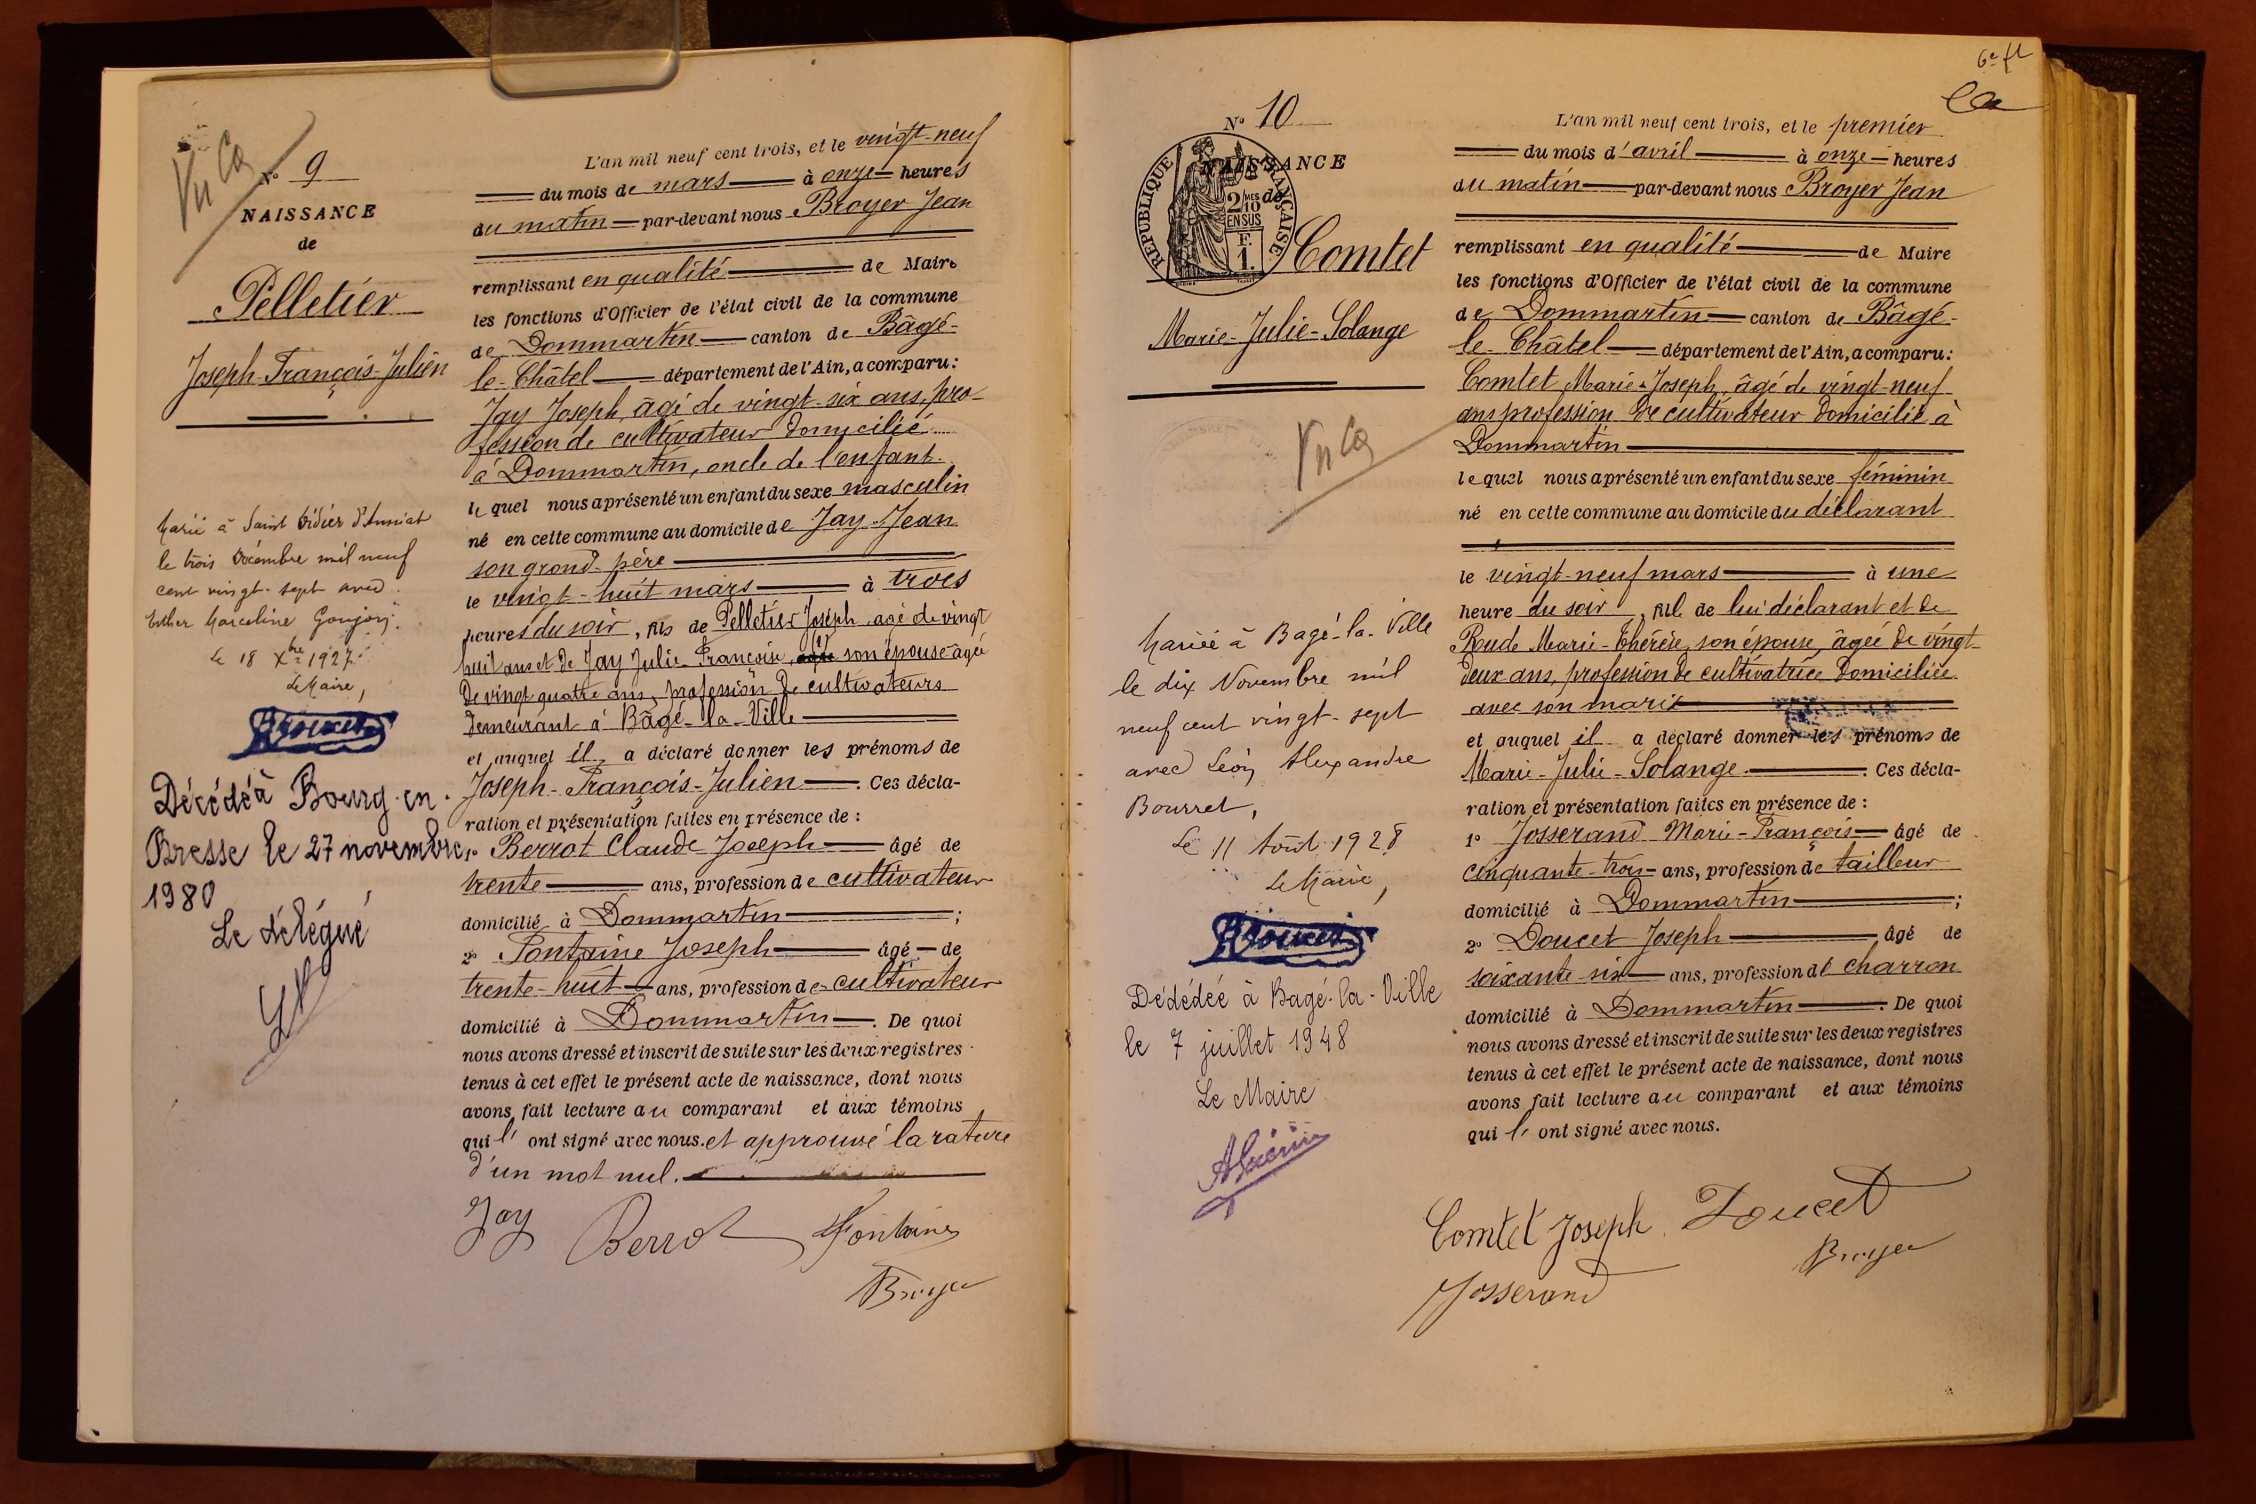 Vu Ca
N° 9
NAISSANCE
de
Pelletier
Joseph-François-Julien
Marié à Saint Didier d'Aussiat
le trois Décembre mil neuf
cent vingt-sept avec
Esther Marceline Goujon.
Le 18 Xbre 1927.
Le Maire,
Doucet
Décédé à Bourg-en-
Bresse le 27 novembre
1980
Le délégué
L'an mil neuf cent trois, et le vingt-neuf
du mois de mars à onze heures
du matin par-devant nous Broyer Jean
remplissant en qualité de Maire
les fonctions d'Officier de l'état civil de la commune
de Dommartin canton de Bâgé-
le-Châtel département de l'Ain, a comparu:
Jay Joseph, âgé de vingt-six ans, pro-
fession de cultivateur domicilié
à Dommartin, oncle de l'enfant.
lequel nous a présenté un enfant du sexe masculin
né en cette commune au domicile de Jay Jean
son grand-père
le vingt-huit mars à trois
heures du soir, fils de Pelletier Joseph, âgé de vingt
huit ans et de Jay Julie-Françoise, son épouse âgée
de vingt-quatre ans, profession de cultivateurs
demeurant à Bâgé-la-Ville
et auquel il a déclaré donner les prénoms de
Joseph-François-Julien. Ces décla-
ration et présentation faites en présence de:
1° Berrot Claude Joseph âgé de
trente ans, profession de cultivateur
domicilié à Dommartin;
2° Fontaine Joseph âgé de
trente-huit ans, profession de cultivateur
domicilié à Dommartin. De quoi
nous avons dressé et inscrit de suite sur les deux registres
tenus à cet effet le présent acte de naissance, dont nous
avons fait lecture au comparant et aux témoins
qui l' ont signé avec nous. et approuvé la rature
d'un mot nul.
Jay Berrot Fontaine
Broyer
6e ft
N° 10
NAISSANCE
de
RÉPUBLIQUE FRANÇAISE
2/10 MES
EN SUS
F.
1.
Comtet
Marie-Julie-Solange
Vu Ca
Mariée à Bagé-la-Ville
le dix Novembre mil
neuf cent vingt-sept
avec Léon Alexandre
Bourret,
Le 11 Août 1928
Le Maire,
Doucet
Dédédée à Bagé-la-Ville
le 7 juillet 1948
Le Maire
AGuérin
L'an mil neuf cent trois, et le premier
du mois d'avril à onze heures
du matin par-devant nous Broyer Jean
remplissant en qualité de Maire
les fonctions d'Officier de l'état civil de la commune
de Dommartin canton de Bâgé-
le-Châtel département de l'Ain, a comparu:
Comtet Marie-Joseph, âgé de vingt-neuf
ans profession de cultivateur domicilié à
Dommartin
lequel nous a présenté un enfant du sexe féminin
né en cette commune au domicile du déclarant
le vingt-neuf mars à une
heure du soir, fille de lui déclarant et de
Rude Marie-Thérèse, son épouse, âgée de vingt-
deux ans, profession de cultivatrice domiciliée
avec son mari
et auquel il a déclaré donner les prénoms de
Marie-Julie-Solange. Ces décla-
ration et présentation faites en présence de:
1° Josserand Marie-François âgé de
cinquante-trois ans, profession de tailleur
domicilié à Dommartin;
2° Doucet Joseph âgé de
soixante six ans, profession de charron
domicilié à Dommartin. De quoi
nous avons dressé et inscrit de suite sur les deux registres
tenus à cet effet le présent acte de naissance, dont nous
avons fait lecture au comparant et aux témoins
qui l' ont signé avec nous.
Comtet Joseph Doucet
Josserand Broyer